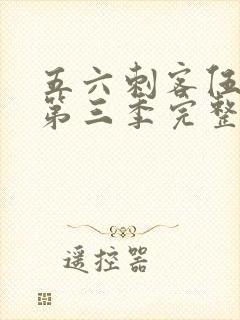 五六刺客伍
第三季完整
遥控器